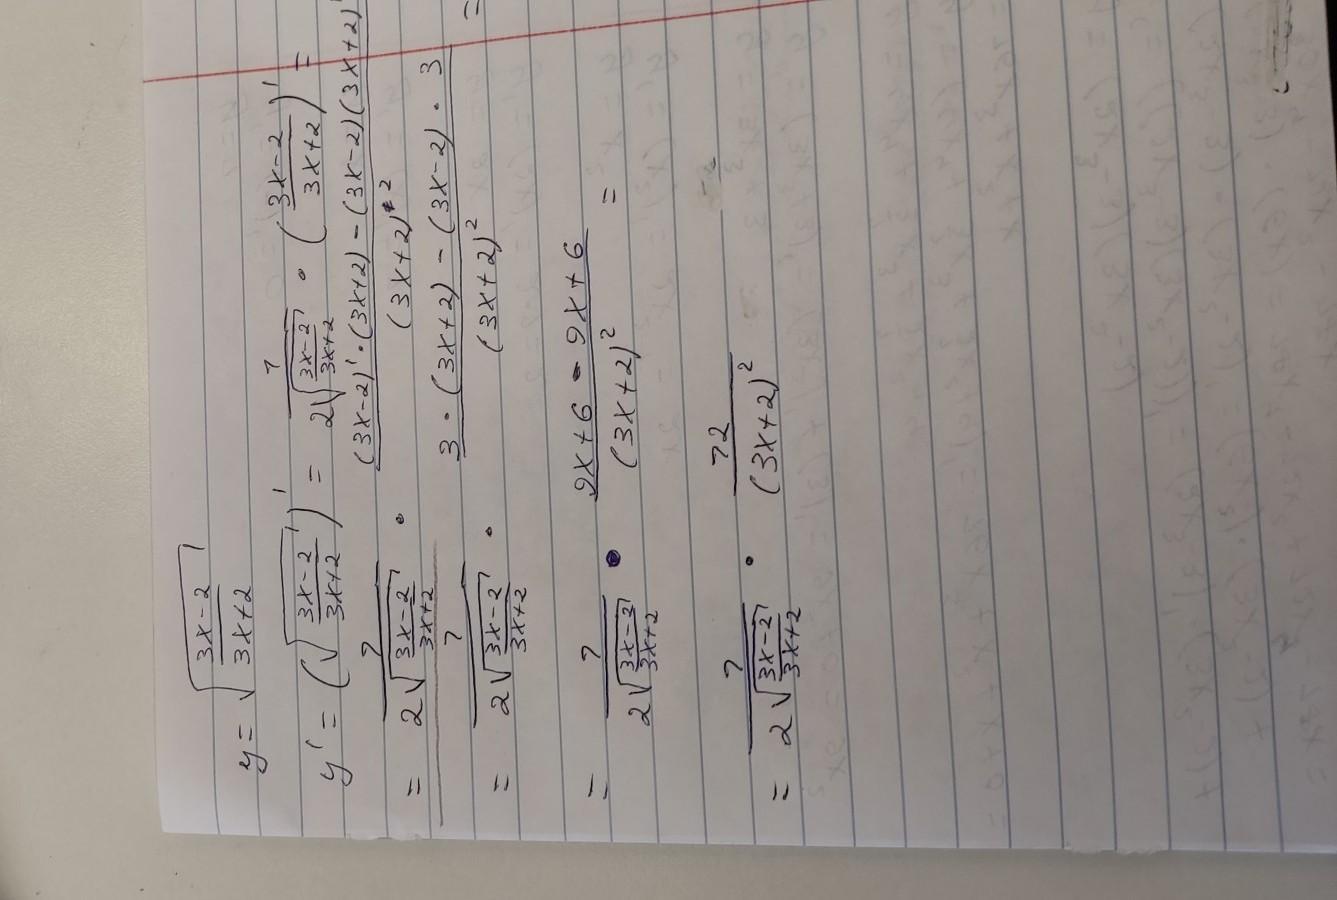 y = √((3x-2)/(3x+2))
y' = (√((3x-2)/(3x+2)))' = 1/(2√((3x-2)/(3x+2))) · ((3x-2)/(3x+2))' =
= 1/(2√((3x-2)/(3x+2))) · ((3x-2)'·(3x+2)-(3x-2)(3x+2)')/(3x+2)²
= 1/(2√((3x-2)/(3x+2))) · (3·(3x+2)-(3x-2)·3)/(3x+2)² =
= 1/(2√((3x-2)/(3x+2))) · (9x+6-9x+6)/(3x+2)² =
= 1/(2√((3x-2)/(3x+2))) · 12/(3x+2)²